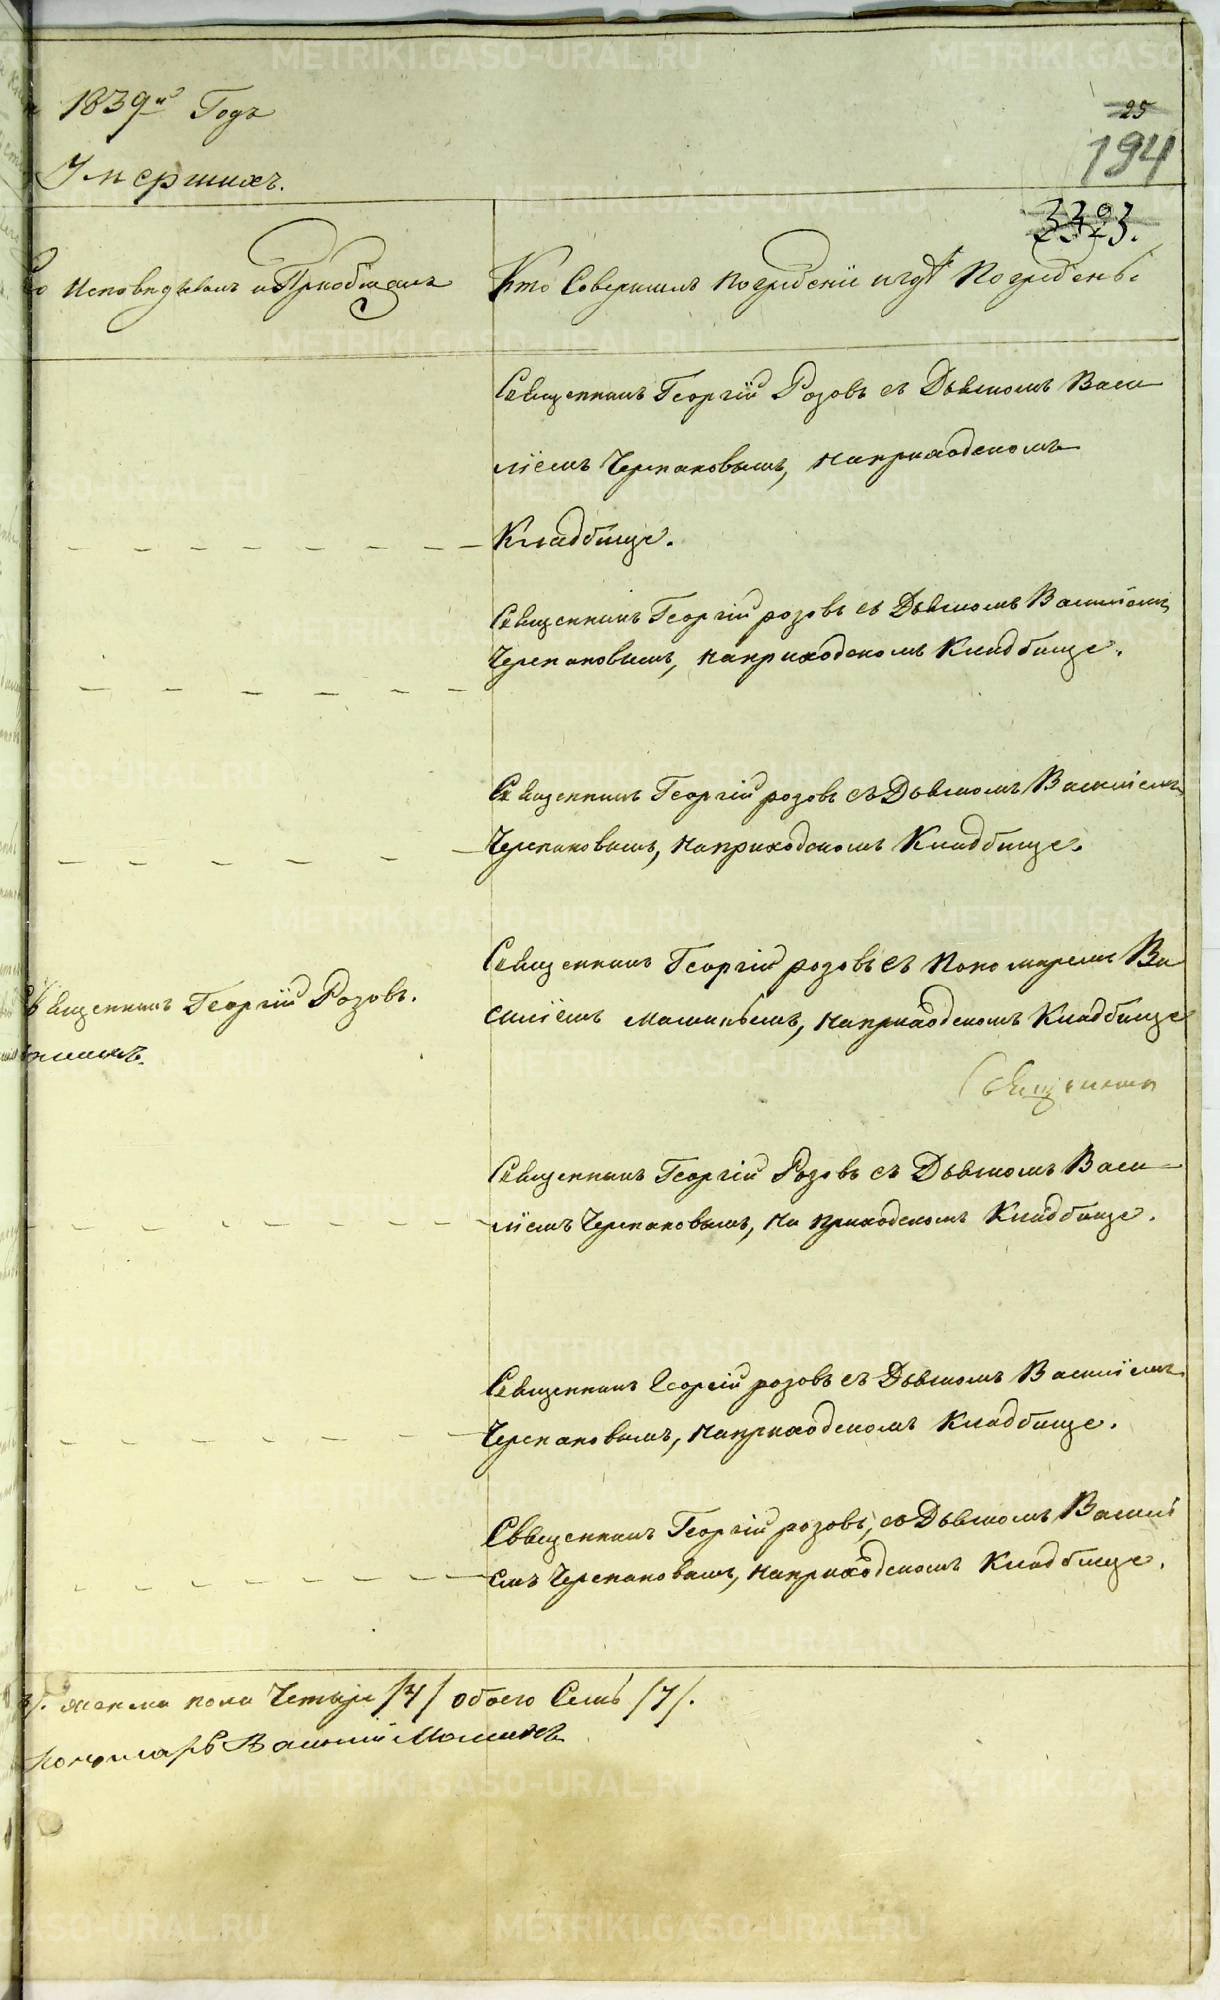 1839й Годъ
Умершихъ.
25
194
3303.
Исповедывалъ и Приобщалъ
Кто Совершилъ Погребенїе и гдѣ Погребены
Священникъ Георгїй Розовъ съ Дьякомъ Васи
лїемъ Черпаковымъ, на приходскомъ
Кладбище.
Священникъ Георгїй розовъ съ Дьякомъ Василїемъ
Черпаковымъ, на приходскомъ Кладбище.
Священникъ Георгїй розовъ съ Дьякомъ Василїемъ
Черпаковымъ, на приходскомъ Кладбище.
Священникъ Георгїй розовъ съ Пономаремъ Ва
силїемъ на приходскомъ Кладбище
Священникъ Георгїй Розовъ.
Священникъ
Священникъ Георгїй Розовъ съ Дьякомъ Васи
лїемъ Черпаковымъ, на приходскомъ Кладбище.
Священникъ Георгїй розовъ съ Дьякомъ Василїемъ
Черпаковымъ, на приходскомъ Кладбище.
Священникъ Георгїй розовъ, съ Дьякомъ Василї
емъ Черпаковымъ, на приходскомъ Кладбище.
женска пола Четыре /4/ обоего Семь /7/.
Пономарь Василий
METRIKI.GASO-URAL.RU